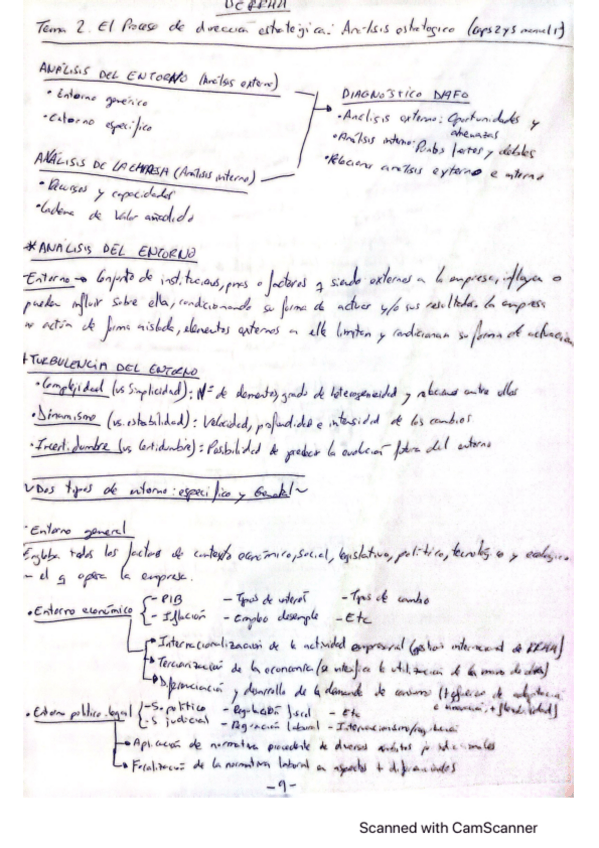 DERRHH
Tema 2. El Proceso de dirección estratégica: Análisis estratégico (caps 2 y 5 manual 1)
ANÁLISIS DEL ENTORNO (Análisis externo)
• Entorno genérico
• Entorno específico
ANÁLISIS DE LA EMPRESA (Análisis interno)
• Recursos y capacidades
• Cadena de Valor añadido
DIAGNOSTICO DAFO
• Análisis externo: Oportunidades y
amenazas
• Análisis interno: Puntos fuertes y débiles
• Relaciona análisis externo e interno
* ANÁLISIS DEL ENTORNO
Entorno → Conjunto de instituciones, o factores q siendo externos a la empresa, influyen o
pueden influir sobre ella, condicionando su forma de actuar y/o sus resultados. La empresa
no actúa de forma aislada, elementos externos a ella limitan y condicionan su forma de actuación
TURBULENCIA DEL ENTORNO
• Complejidad (vs Simplicidad): Nº de elementos, grado de heterogeneidad y relaciones entre ellos
• Dinamismo (vs. estabilidad): Velocidad, profundidad e intensidad de los cambios
• Incertidumbre (vs Certidumbre): Posibilidad de predecir la evolución futura del entorno
Dos tipos de entorno: específico y General ~
· Entorno general
Engloba todos los factores de contexto económico, social, legislativo, político, tecnológico y ecológico
en el q opera la empresa.
• Entorno económico { - PIB - Tipos de interés - Tipos de cambio
- Inflación - Empleo desempleo - Etc
• Internacionalización de la actividad empresarial (gestión internacional de RRHH)
• Terciarización de la economía (se intensifica la utilización de la mano de obra)
• Diferenciación y desarrollo de la demanda de consumo (+ esfuerzo de adaptación
e innovación, + flexibilidad)
• Entorno político-legal { - S. político - Regulación fiscal - Etc
- S judicial - Regulación laboral -
→ Aplicación de normativa procedente de diversos ámbitos
→ Focalización de la normativa laboral en aspectos + diferenciales
- 9 -
Scanned with CamScanner